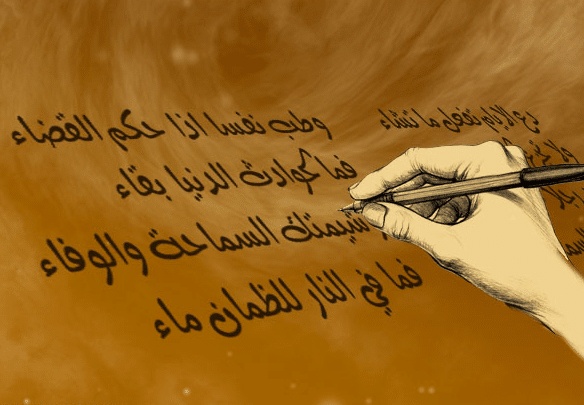 دع الايام تفعل ما تشاء وطب نفسا اذا حكم القضاء
فما لحوادث الدنيا بقاء
شيمتك السماحة والوفاء
فما في النار للظمان ماء